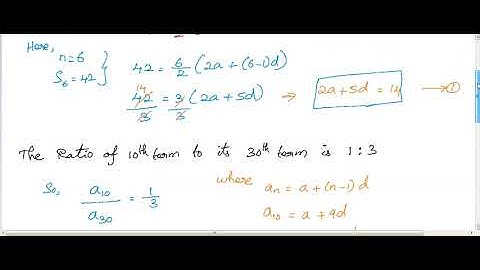 Here,
n=6
S₆ = 42 } 42 = 6/2 (2a + (6-1)d)
14
42/3 = 3/3 (2a + 5d) → 2a + 5d = 14 → ①
The Ratio of 10th term to its 30th term is 1 : 3
So, a₁₀/a₃₀ = 1/3 where aₙ = a + (n-1) d
a₁₀ = a + 9d